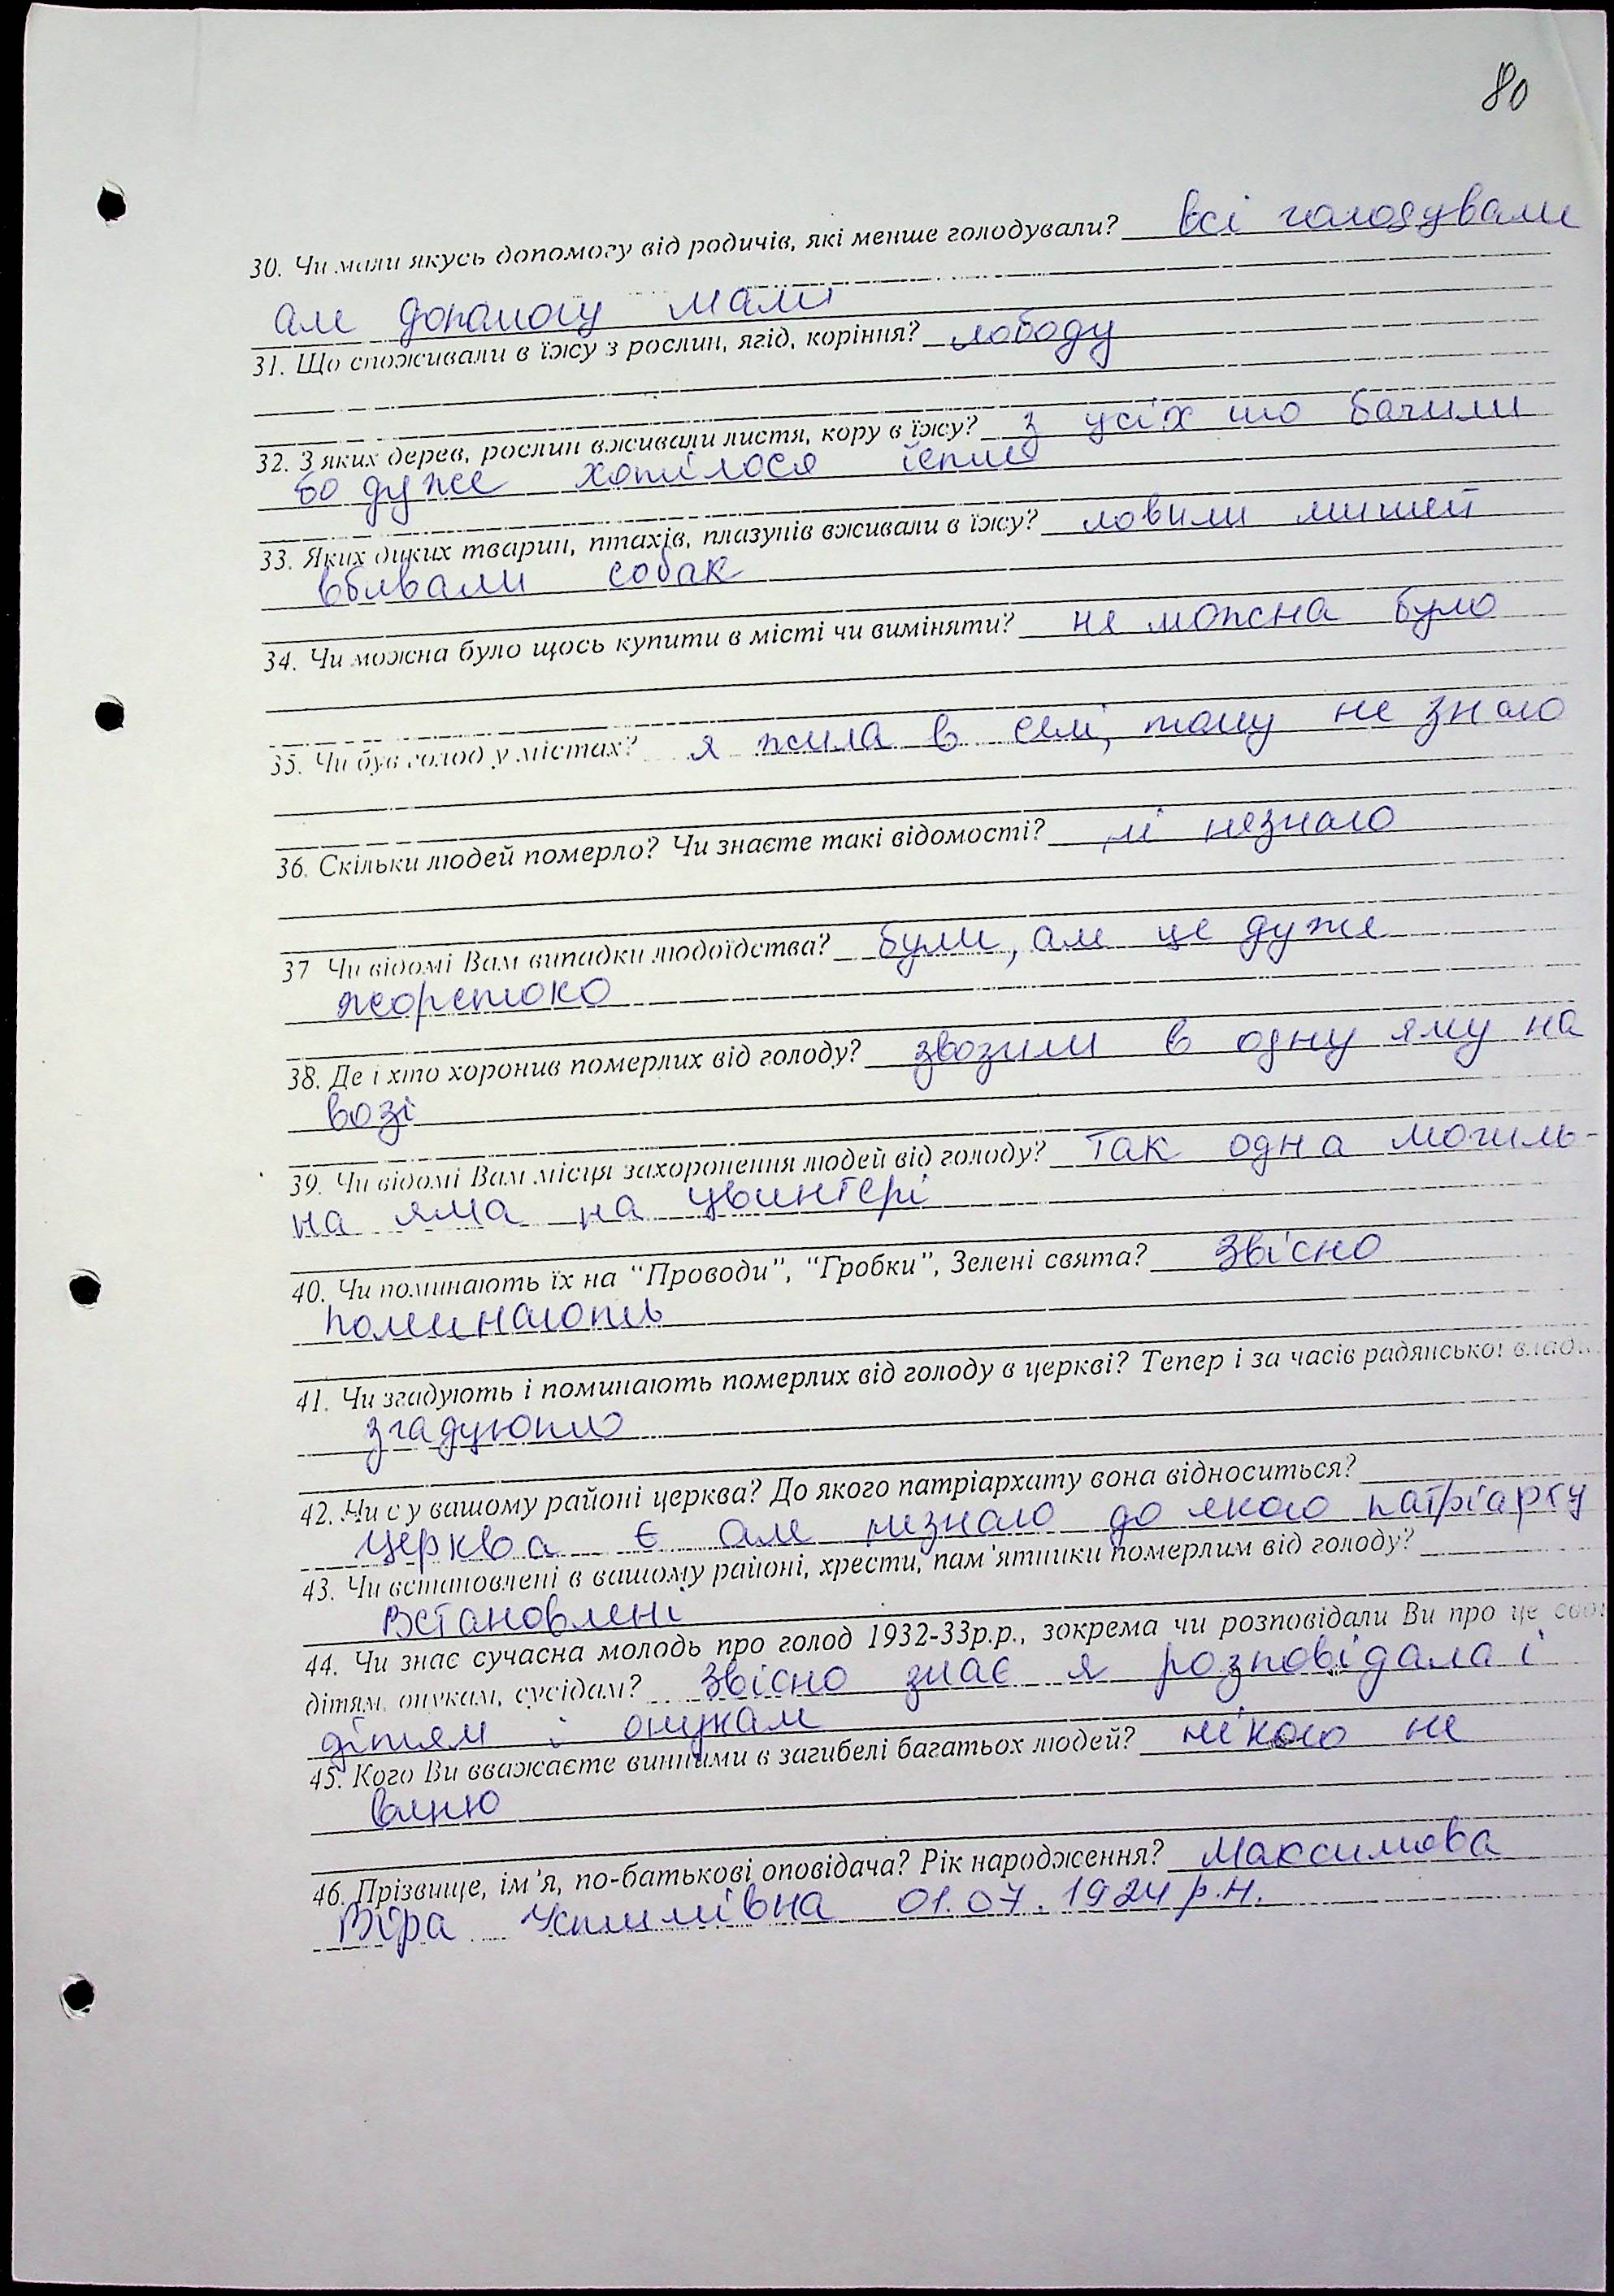 80
30. Чи мали якусь допомогу від родичів, які менше голодували? всі голодували
але допомогу мали
31. Що споживали в їжу з рослин, ягід, коріння? лободу
32. З яких дерев, рослин вживали листя, кору в їжу? з усіх що бачили
бо дуже хотілося їсти
33. Яких диких тварин, птахів, плазунів вживали в їжу? ловили мишей
вбивали собак
34. Чи можна було щось купити в місті чи виміняти? не можна було
35. Чи був голод у містах? я жила в селі, тому не знаю
36. Скільки людей померло? Чи знаєте такі відомості? ні незнаю
37. Чи відомі Вам випадки людоїдства? були, але це дуже
жорстоко
38. Де і хто хоронив померлих від голоду? звозили в одну яму на
возі
39. Чи відомі Вам місця захоронення людей від голоду? Так одна могиль-
на яма на цвинтері
40. Чи поминають їх на "Проводи", "Гробки", Зелені свята? Звісно
поминають
41. Чи згадують і поминають померлих від голоду в церкві? Тепер і за часів радянської влад
згадують
42. Чи є у вашому районі церква? До якого патріархату вона відноситься?
церква є але незнаю до якого патріарху
43. Чи встановлені в вашому районі, хрести, пам'ятники померлим від голоду?
Встановлені
44. Чи знає сучасна молодь про голод 1932-33р.р., зокрема чи розповідали Ви про це
дітям, онукам, сусідам? Звісно знає я розповідала і
дітям і онукам
45. Кого Ви вважаєте винними в загибелі багатьох людей? нікого не
виню
46. Прізвище, ім'я, по-батькові оповідача? Рік народження? Максимова
Віра Устимівна 01.07.1924 р.н.